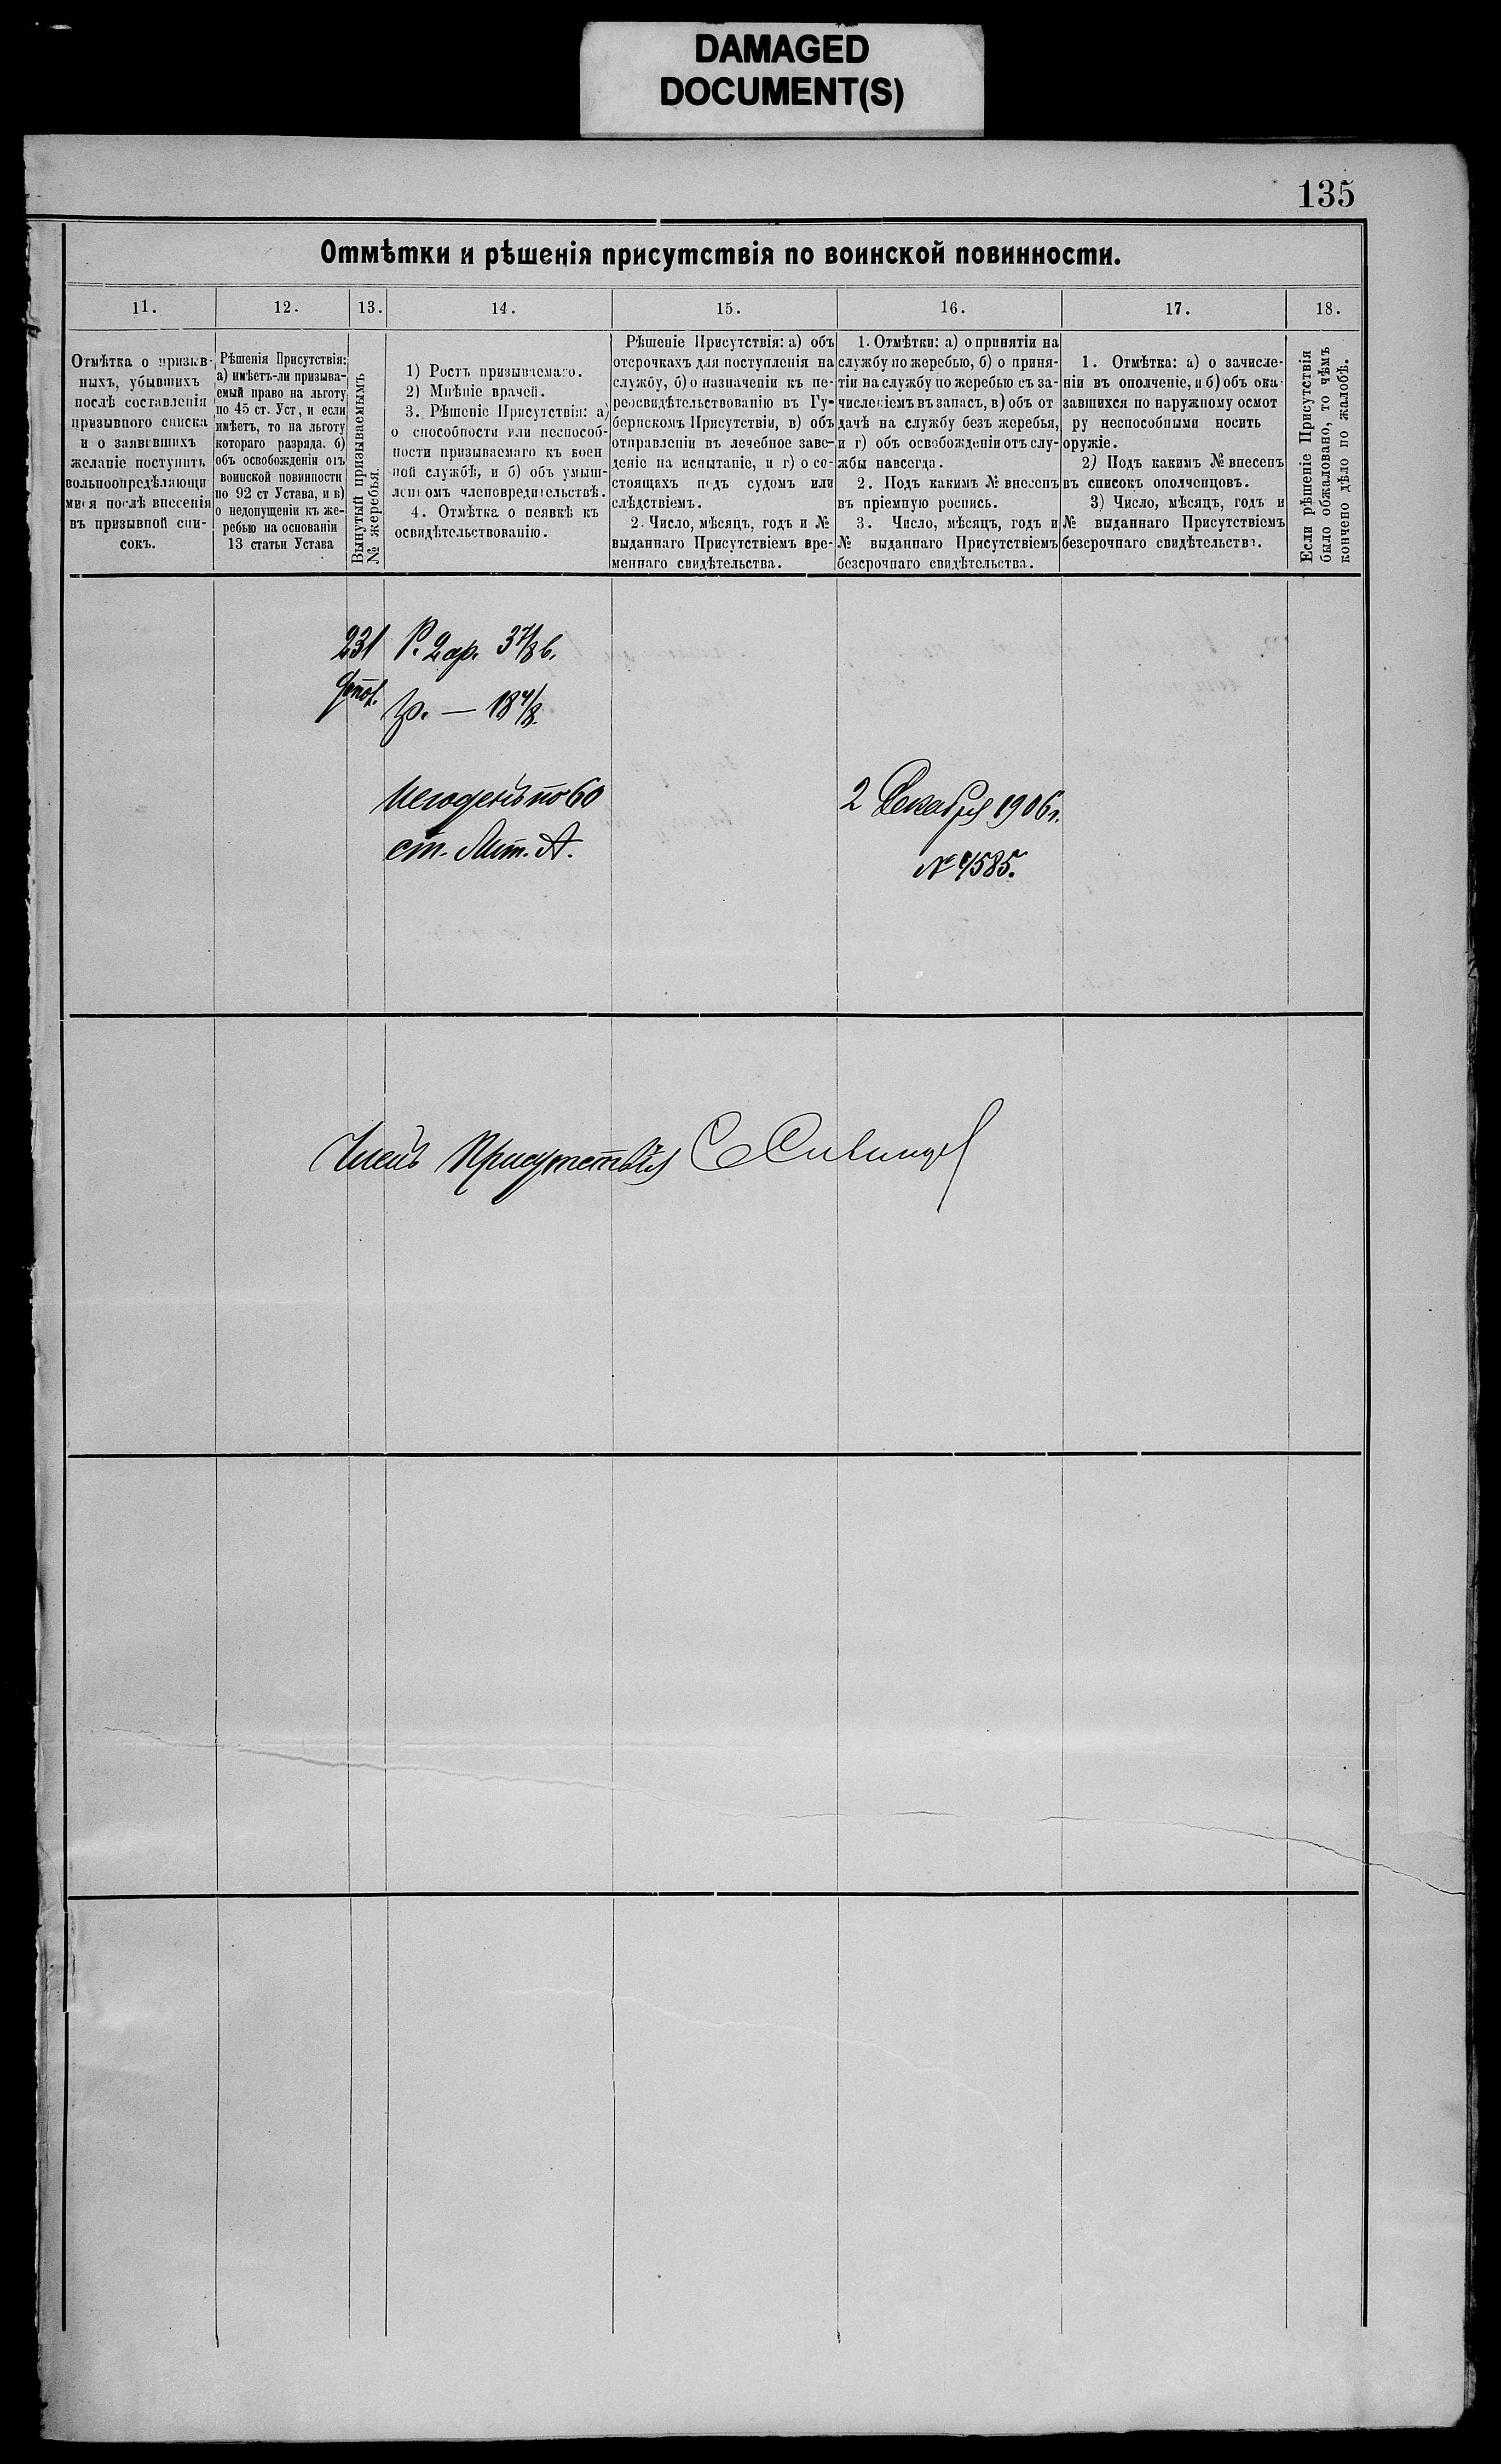 DAMAGED
DOCUMENT(S)
135
Отмѣтки и рѣшенія присутствія по воинской повинности.
11.
12.
13.
14.
15.
16.
17.
18.
Отмѣтка о призыв-
ныхъ, убывшихъ
послѣ составленія
призывного списка
и о заявившихъ
желаніе поступить
вольноопредѣляющи
мися послѣ внесенія
въ призывной спи-
сокъ.
Рѣшенія Присутствія:
а) имѣетъ-ли призыва-
емый право на льготу
по 45 ст. Уст, и если
имѣетъ, то на льготу
котораго разряда. б)
объ освобожденіи отъ
воинской повинности
по 92 ст Устава, и в)
о недопущеніи къ же-
ребью на основаніи
13 статьи Устава
Вынутый призываемымъ
№ жеребья.
1) Ростъ призываемаго.
2) Мнѣніе врачей.
3. Рѣшеніе Присутствія: а)
о способности или неспособ-
ности призываемаго къ воен
ной службѣ, и б) объ умыш-
леномъ членовредительствѣ.
4. Отмѣтка о неявкѣ къ
освидѣтельствованію.
Рѣшеніе Присутствія: а) объ
отсрочкахъ для поступленія на
службу, б) о назначеніи къ пе-
реосвидѣтельствованію въ Гу-
бернскомъ Присутствіи, в) объ
отправленіи въ лечебное заве-
деніе на испытаніе, и г) о со-
стоящахъ подъ судомъ или
слѣдствіемъ.
2. Число, мѣсяцъ, годъ и №
выданнаго Присутствіемъ вре-
меннаго свидѣтельства.
1. Отмѣтки: а) о принятіи на
службу по жеребью, б) о приня-
тіи на службу по жеребью съ за-
численіемъ въ запасъ, в) объ от
дачѣ на службу безъ жеребья,
и г) объ освобожденіи отъ слу-
жбы навсегда.
2. Подъ какимъ № внесенъ
въ пріемную роспись.
3. Число, мѣсяцъ, годъ и
№ выданнаго Присутствіемъ
безсрочнаго свидѣтельства.
1. Отмѣтка: а) о зачисле-
ніи въ ополченіе, и б) объ ока-
завшихся по наружному осмот
ру неспособными носить
оружіе.
2) Подъ какимъ № внесенъ
въ списокъ ополченцовъ.
3) Число, мѣсяцъ, годъ и
№ выданнаго Присутствіемъ
безсрочнаго свидѣтельства.
Если рѣшеніе Присутствія
было обжаловано, то чѣмъ
кончено дѣло по жалобѣ.
231
Р. 2 ар. 3 7/8 в.
гр. — 18 4/8.
Негоденъ по 60
ст. Лит. А.
2 Декабря 1906 г.
№ 4585.
Членъ Присутствія